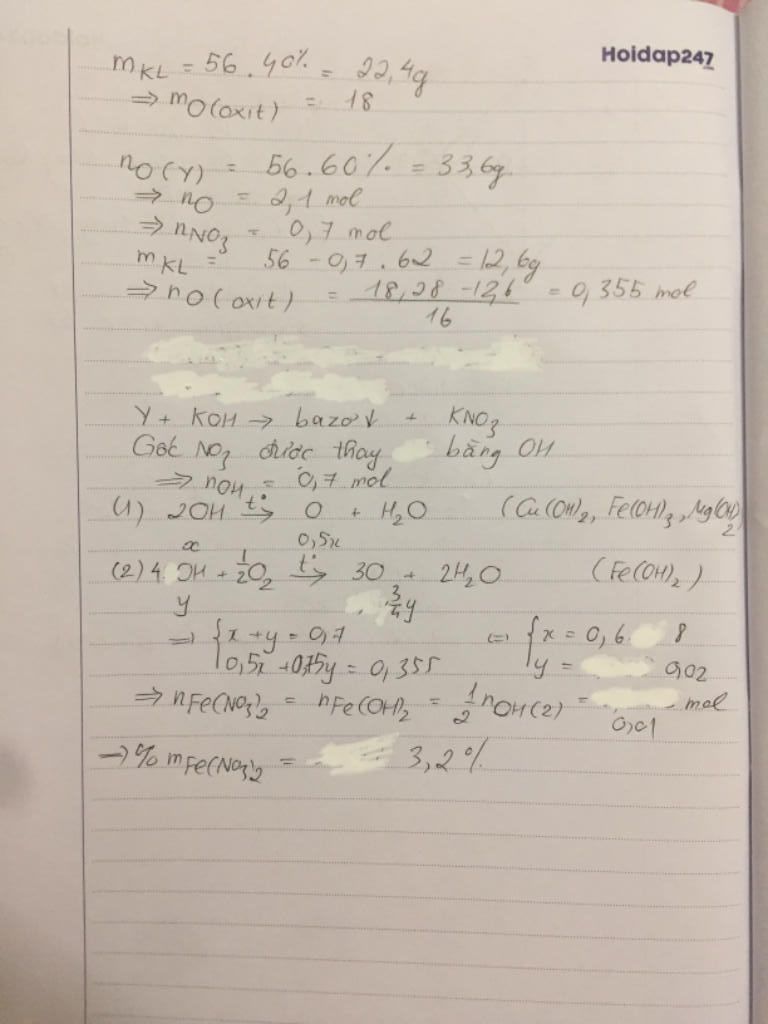 Hoidap247
mKL = 56.40% = 22,4g
⇒ mO(oxit) = 18
nO(Y) = 56.60% = 33,6g
⇒ nO = 2,1 mol
⇒ nNO3 = 0,7 mol
mKL = 56 - 0,7.62 = 12,6g
⇒ nO(oxit) = (18,28 - 12,6)/16 = 0,355 mol
Y + KOH → bazơ↓ + KNO3
Gốc NO3 được thay bằng OH
⇒ nOH = 0,7 mol
(1) 2OH t°→ O + H2O (Cu(OH)2, Fe(OH)3, Mg(OH)2
x 0,5x
(2) 4OH + 1/2O2 t°→ 3O + 2H2O (Fe(OH)2)
y 3/4y
⇒ {x + y = 0,7 ⇔ {x = 0,6 8
0,5x + 0,75y = 0,355 y = 0,02
⇒ nFe(NO3)2 = nFe(OH)2 = 1/2 nOH(2) = mol
0,01
→ % mFe(NO3)2 = 3,2%